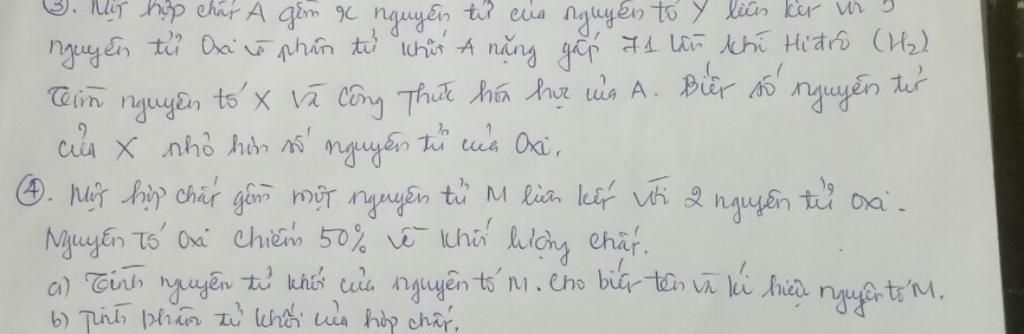 ③. Một hợp chất A gồm x nguyên tử của nguyên tố Y liên kết với 5
nguyên tử Oxi và phân tử khối A nặng gấp 71 lần khí Hiđrô (H₂).
Tìm nguyên tố X và Công Thức hóa học của A. Biết số nguyên tử
của X nhỏ hơn số nguyên tử của Oxi.
④. Một hợp chất gồm một nguyên tử M liên kết với 2 nguyên tử oxi.
Nguyên Tố Oxi chiếm 50% về khối lượng chất.
a) Tính nguyên tử khối của nguyên tố M. Cho biết tên và kí hiệu nguyên tố M.
b) Tính phân tử khối của hợp chất.